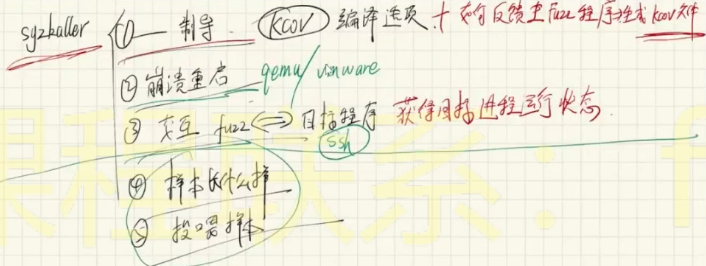 syzkaller ① 制导 kcov 编译选项 + 如何反馈里fuzz程序 kcov文件
② 崩溃重启 qemu/vmware
③ 交互 fuzz <=> 目标程序 获得目标进程运行状态.
ssh
④ 样本长什么样
⑤ 投喂样本
课程联系: f